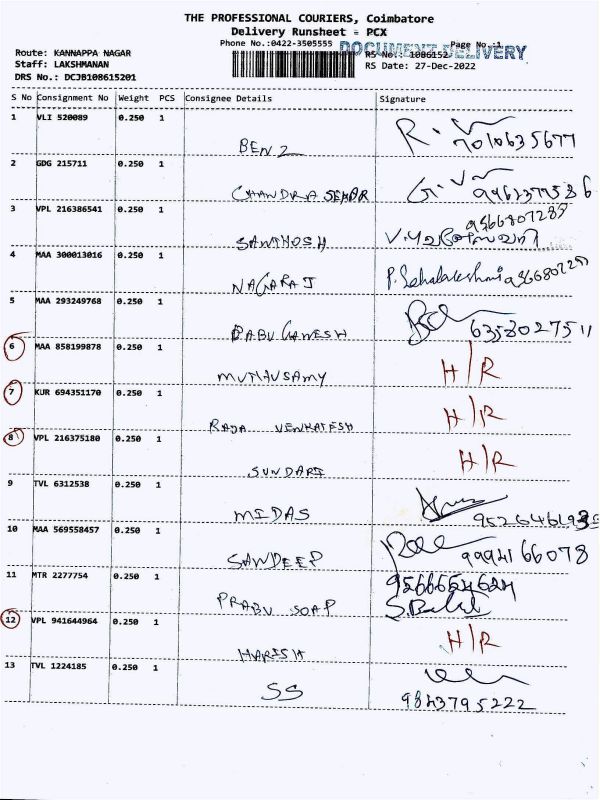 THE PROFESSIONAL COURIERS, Coimbatore
Delivery Runsheet - PCX
Phone No.:0422-3505555
DOCUMENT DELIVERY
Page No.:1
Route: KANNAPPA NAGAR
RS No.: 1086152
Staff: LAKSHMANAN
RS Date: 27-Dec-2022
DRS No.: DCJB108615201
S No Consignment No Weight PCS Consignee Details Signature
1 VLI 520089 0.250 1
BENZ 7010635677
2 GDG 215711 0.250 1
CHANDRA SEKAR
3 VPL 216386541 0.250 1
9566807289
SANTHOSH
4 MAA 300013016 0.250 1
NAGARAJ P. Sehalakshmi
5 MAA 293249768 0.250 1
BABU GANESH 6358027511
6 MAA 858199878 0.250 1
MUTHUSAMY H/R
7 KUR 694351170 0.250 1
RAJA VENKATESH H/R
8 VPL 216375180 0.250 1
SUNDARI H/R
9 TVL 6312538 0.250 1
MIDAS
10 MAA 569558457 0.250 1
SANDEEP 9994166078
11 MTR 2277754 0.250 1
PRABU SOAP
12 VPL 941644964 0.250 1
HARISH H/R
13 TVL 1224185 0.250 1
SS 9843795222